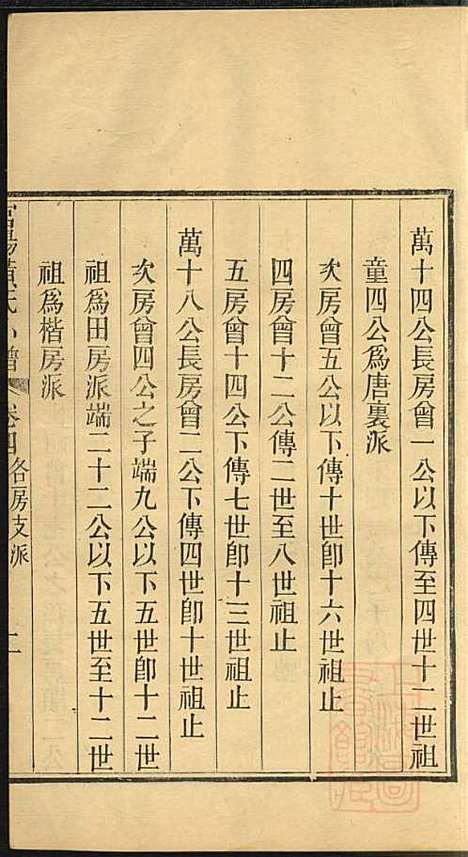 萬十四公長房曾一公以下傳至四世十二世祖
童四公為唐裏派
次房曾五公以下傳十世卽十六世祖止
四房曾十二公傳二世至八世祖止
五房曾十四公下傳七世卽十三世祖止
萬十八公長房曾二公下傳四世卽十世祖止
次房曾四公之子端九公以下五世卽十二世
祖為田房派端二十二公以下五世至十二世
祖為楷房派
卷四 各房支派 二